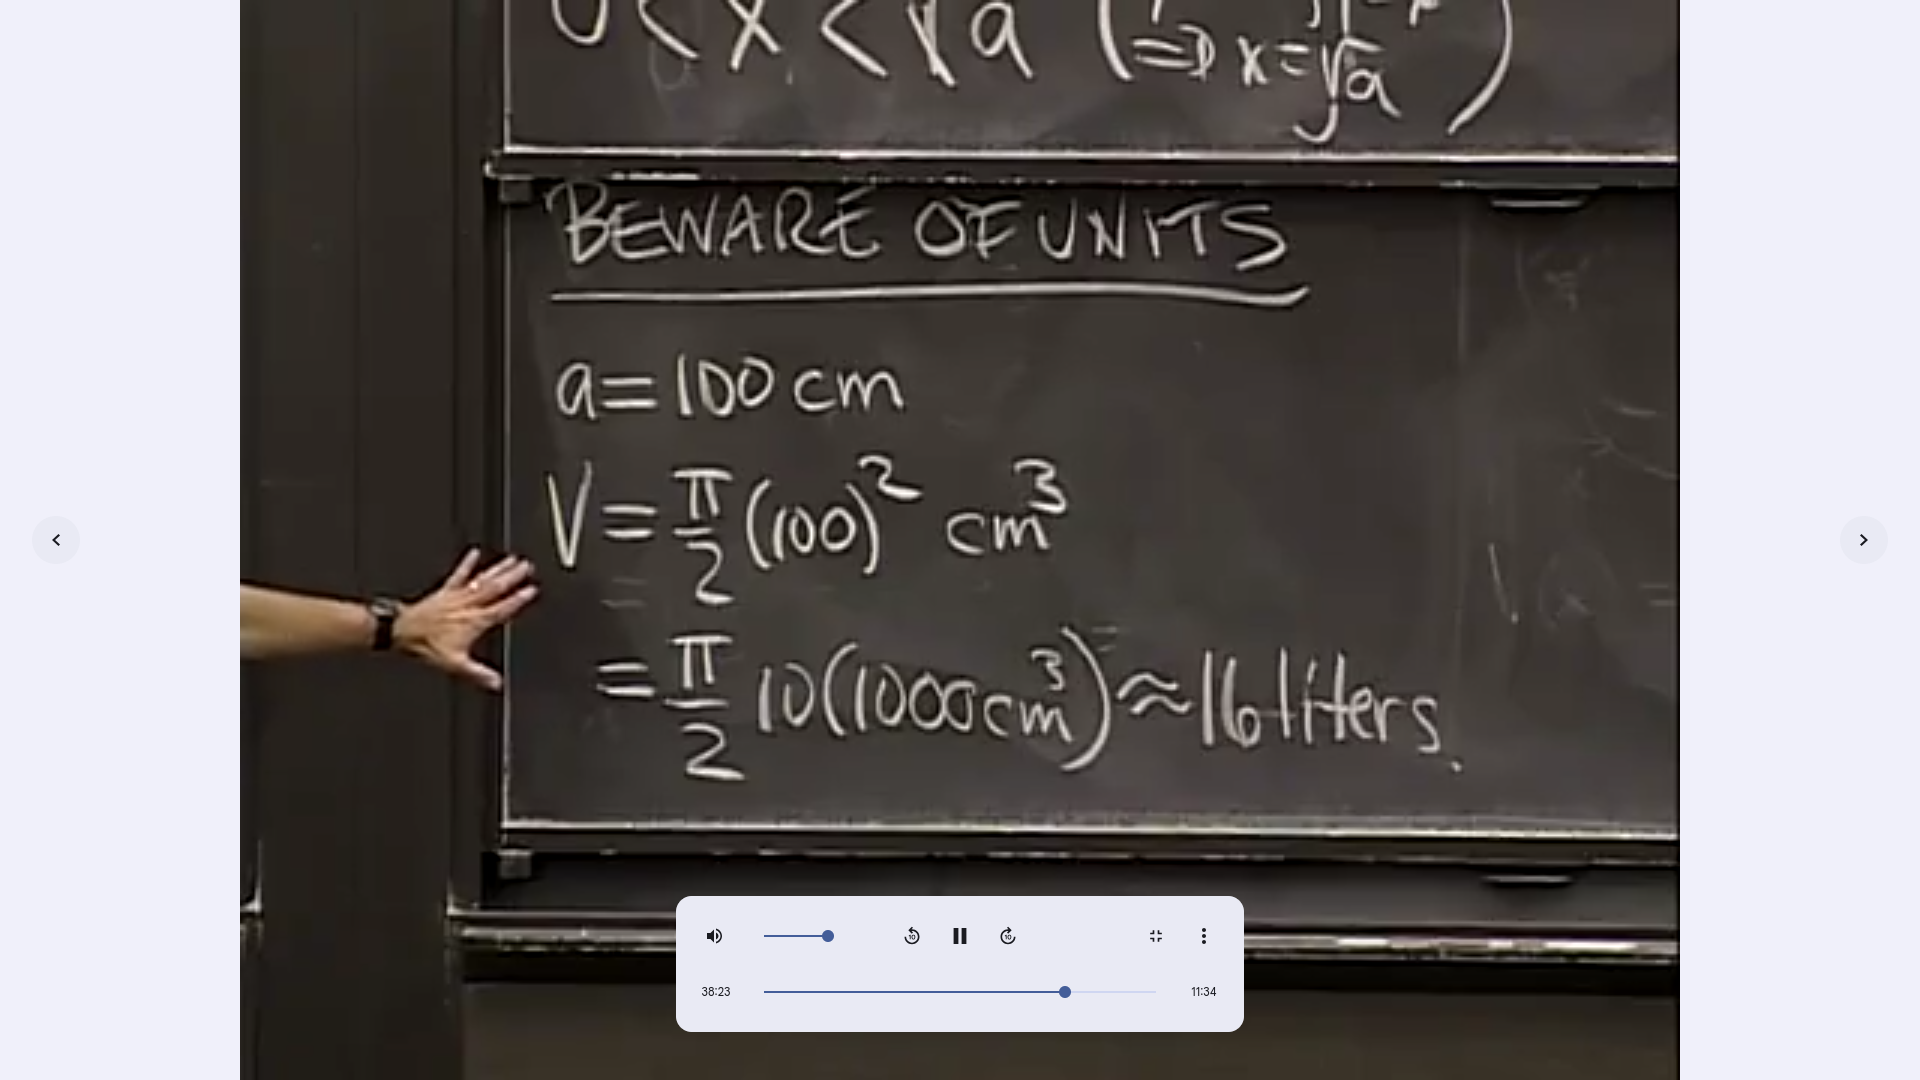 0 < x < √a (⇒ x = √a)
BEWARE OF UNITS
a = 100 cm
V = π/2 (100)² cm³
= π/2 10(1000 cm³) ≈ 16 liters.
10
10
38:23
11:34